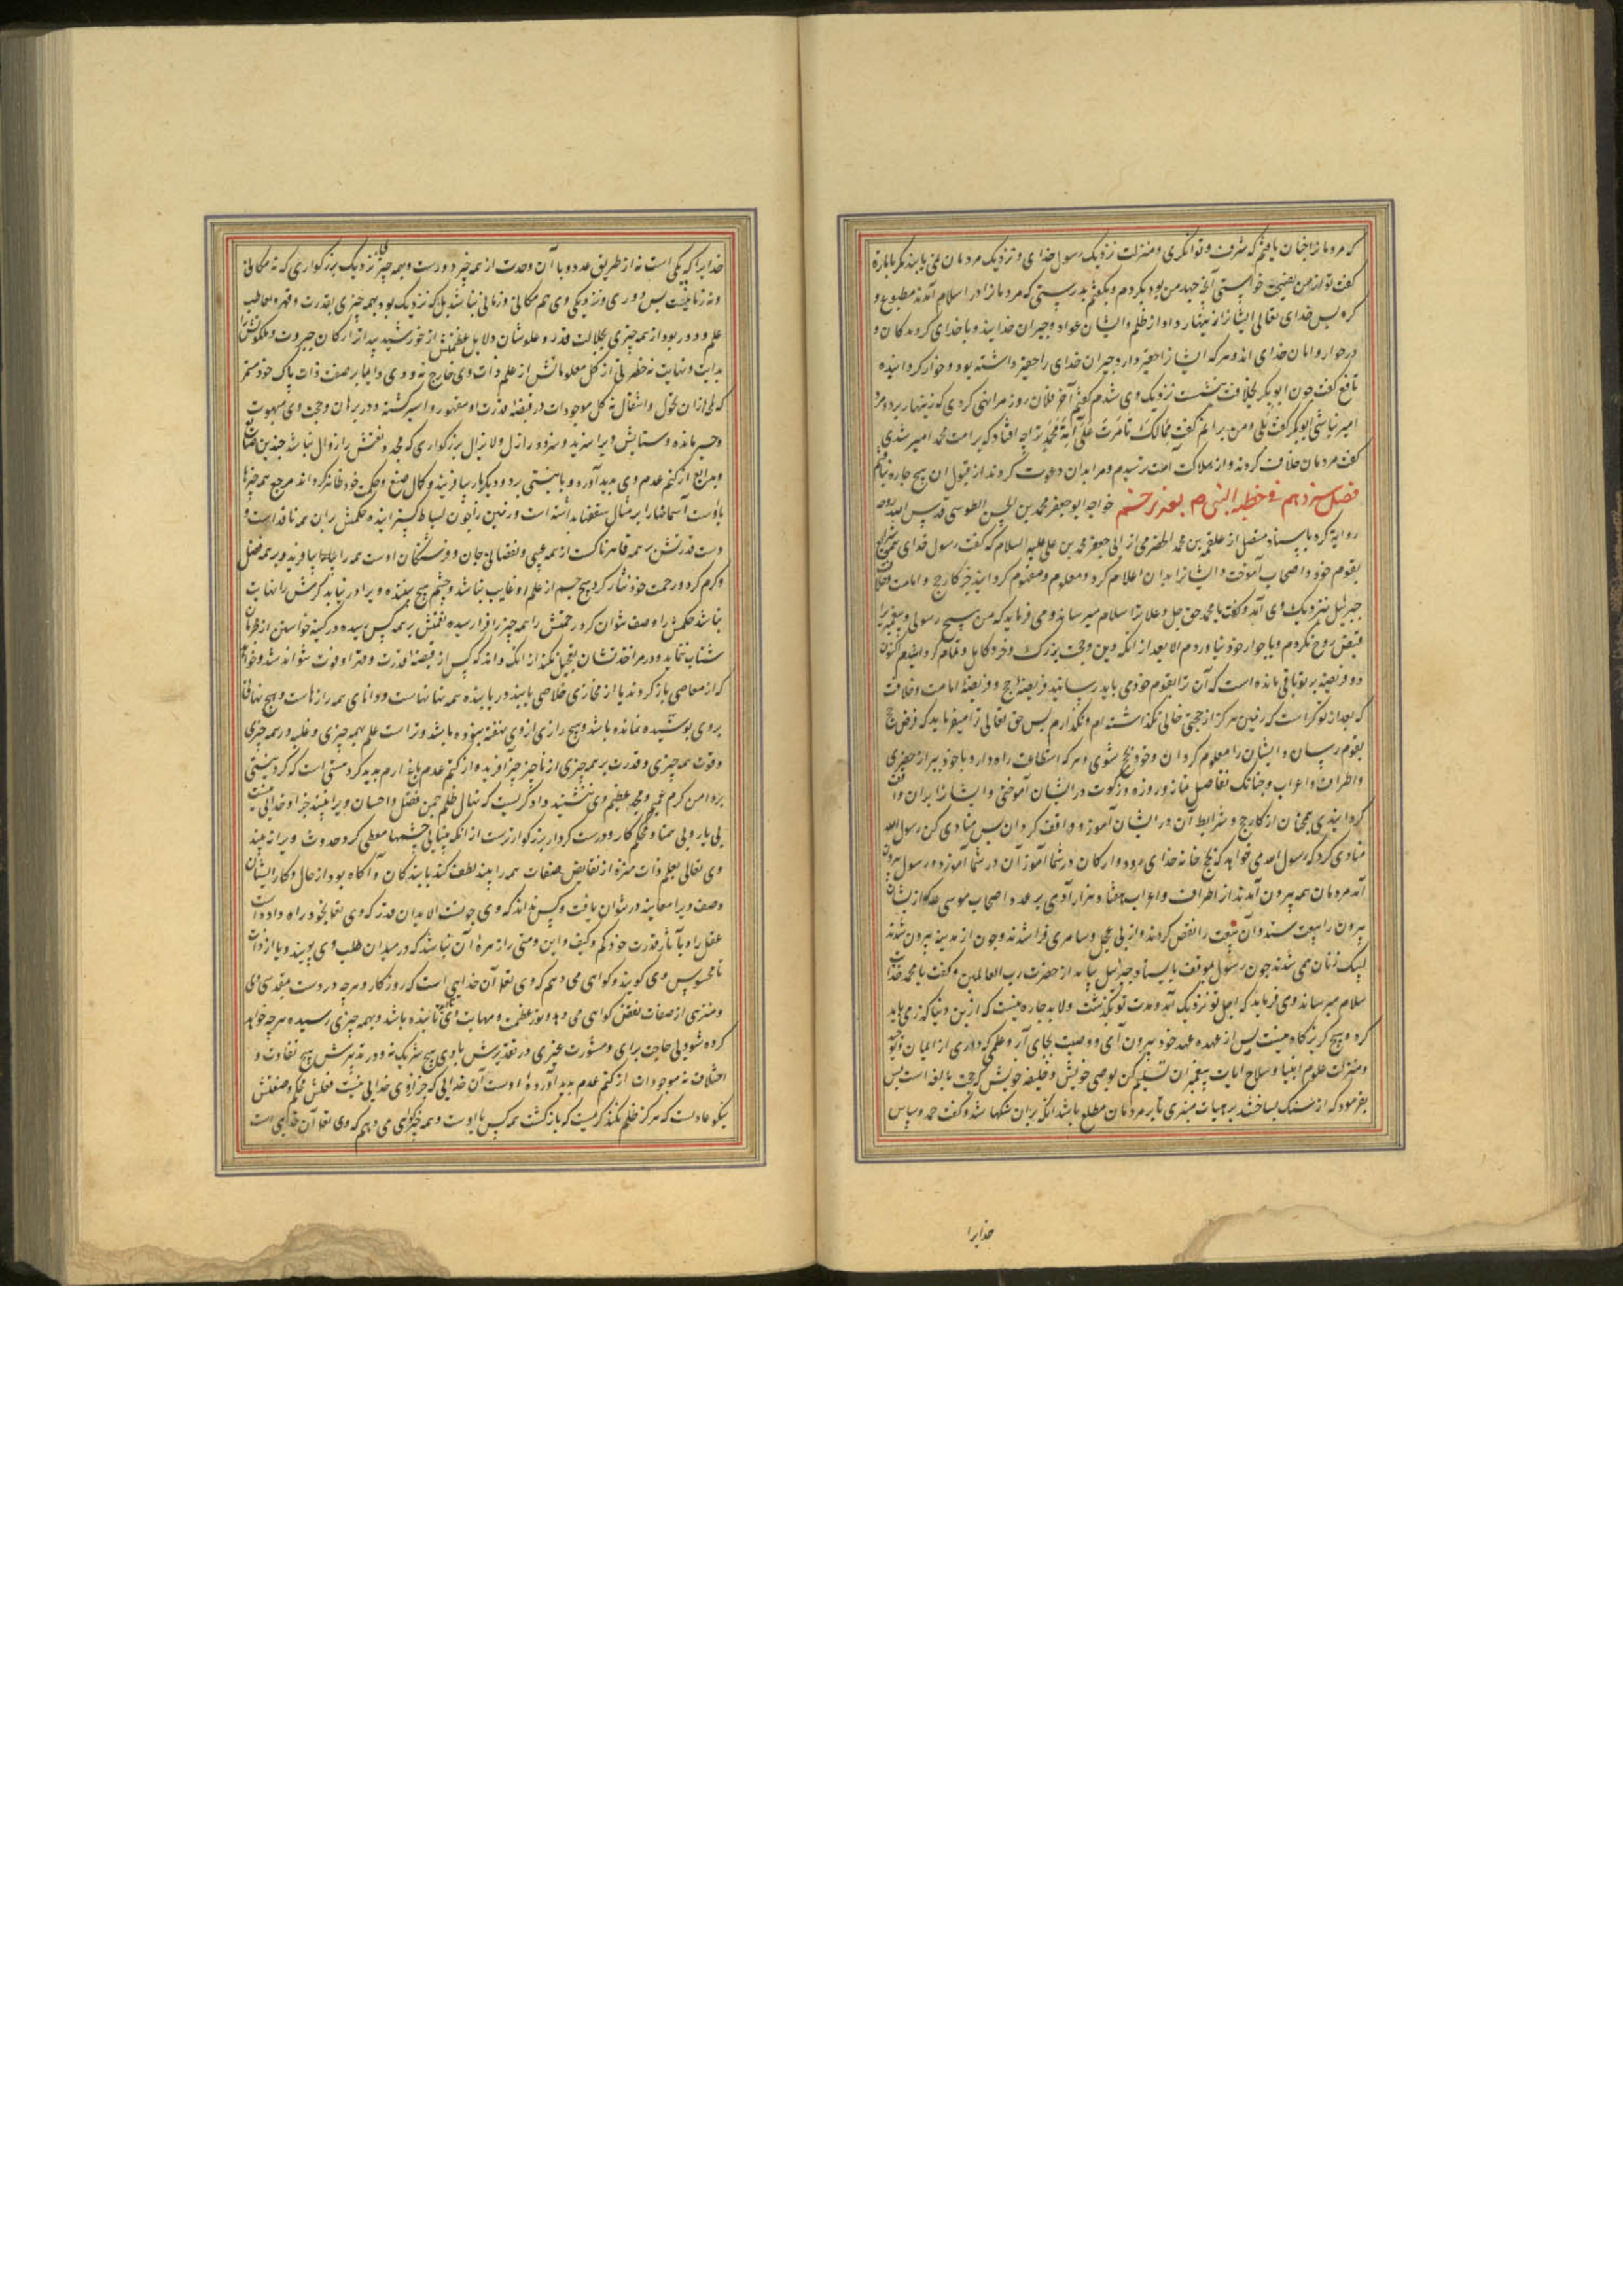 که مردمانرا چنان یافتم که شرف و توانگری و منزلت نزدیک رسول خدای و نزدیک مردمان نمی یابند مگر بامارة
گفت تو از من نصیحت خواستی آنچه جهد من بود بکردم و بگفتم بدرستی که مردمانرا در اسلام آمدند مطبوع و
کره پس خدای تعالی ایشانرا زینهار داد از ظلم و ایشان عواد و جیران خدایند و با خدای کروند کان و
در جوار و امان خدای اند و هر که ایشانرا حقیر دارد جیران خدای را حقیر داشته بود و خوار گردانیده
نافع گفت چون ابوبکر بخلافت بنشست نزدیک وی شدم گفتم آخر فلان روز مرا نهی کردی که زینهار بر دو مرد
امیر نباشی ابوبکر گفت بلی و من برانم گفت فمالک تأمرت علی امة محمد ترا چه افتاد که بر امت محمد امیر شدی
گفت مردمان خلاف کردند و از هلاکت امت ترسیدم و مرا بدان دعوت کردند از قبول آن هیچ چاره نیافتم
فصل سیزدهم فی خطبة النبی ص بغدیر خم خواجه ابو جعفر محمد بن الحسن الطوسی قدس الله روحه
روایة کرد باسناد متصل از علقمة بن محمد الحضرمی از ابی جعفر محمد بن علی علیه السلام که گفت رسول خدای
بقوم خود و اصحاب آموخت و ایشانرا بدان اعلام کرد و معلوم و مفهوم گردانید جز کار حج و امامت
جبرئیل بنزدیک وی آمد و گفت یا محمد حق جل و علا ترا سلام میرساند و می فرماید که من هیچ رسولی و پیغمبریرا
قبض روح نکردم و با جوار خود نیاوردم الا بعد از انکه دین و حجت بزرک و خرد کامل و تمام گردانیدم کنون
دو فریضه بر تو باقی مانده است که آن ترا بقوم خود می باید رسانید فریضۀ حج و فریضۀ امامت و خلافت
که بعد از تو کراست که زمین هرگز از حجتی خالی نگذاشته ام و نگذارم پس حق تعالی ترا میفرماید که فرض حج
بقوم رسان و ایشان را معلوم گردان و خود بحج شوی و هر که استطاعت راه دارد با خود ببر از حضری
و اطراف و اعراب و چنانک تفاصیل نماز و روزه و زکوت در ایشان آموختی و ایشانرا بران واقف
گردانیدی همچنان از کار حج و شرایط آن در ایشان آموز و واقف گردان پس منادی کن رسول الله
منادی کرد که رسول الله می خواهد که بحج خانه خدای رود و ارکان در شما آموزد آن در شما آموزد و رسول بیرون
آمد مردمان همه بیرون آمدند از اطراف و اعراب هفتاد هزار آدمی بر عدد اصحاب موسی علیه که از ایشان
بهرون را بیعت ستد و آن بیعت را نقض کردند و از پی عجل و سامری فرا شدند و چون از مدینه بیرون شدند
لبیک زنان همی شدند چون رسول بموقف بایستاد جبرئیل بیامد از حضرت رب العالمین و گفت یا محمد خدایت
سلام میرساند و می فرماید که اجل تو نزدیک آمد و مدت تو بگذشت و لابد چاره نیست که ازین دنیا گذر می باید
کرد و هیچ گریزگاه نیست پس از عهده عهد خود بیرون آی و وصیت بجای آر و علمی که داری
و میراث علوم انبیا و سلاح امانت پیغمبران تسلیم کن بوصی خویش و خلیفه خویش که حجت بالغه است پس
بفرمود که از سنگ بساختند بر هیات منبری تا بر مردمان مطلع باشد انگه بران سنگها شد و گفت حمد و سپاس
خدایرا
خدایرا که یکی است نه از طریق عدد و با آن وحدت از همه چیز دورست و بهمه چیز نزدیک بزرگواری که نه مکانی
و نه زمانیست پس دوری و نزدیکی وی هم مکانی و زمانی نباشد بلکه نزدیک بود بهمه چیزی بقدرت و قهر و
علم و دور بود از همه چیزی بجلالت قدر و علو شان دلایل عظمتش از خورشید پیداتر ارکان جبروت و ملکوتش را
بدایت و نهایت نه خطی از کل معلوماتش از علم ذات وی خارج نه و وی دایما بر صفت ذات پاک خود مستمر
که از ان تحول و انتقال نه کل موجودات در قبضۀ قدرت او مقهور و اسیر گشته و در برهان و حجت وی مبهوت
و حیر مانده و ستایش ویرا سزید و سزود در ازل و لایزال بزرگواری که مجد و نعتش را زوال نباشد چندین صنایع
و بدایع از کتم عدم وی پدید آورد و با نیستی برد و دیگر بار بیافریند و کمال صنع و حکمت خود ظاهر گرداند مرجع همه چیزها
باوست آسمانها را بر مثال سقفها بداشته است و زمین را چون بساط گسترانیده حکمش بران همه نافذ است و
دست قدرتش بر همه قاهر پاکست از همه عیبی و نقصانی جان و فرشتگان اوست همه را بیافرید و بر همه فضل
و کرم کرد و رحمت خود نثار کرد هیچ جسم از علم او غایب نباشد و چشم هیچ بیننده ویرا در نیابد کرمش را نهایت
نباشد حلمش را وصف نتوان کرد رحمتش را همه چیز را فرا رسیده نعمتش بر همه کس رسیده در کینه خواستن از ظالمان
شتاب ننماید و در مؤاخذتشان تعجیل نکند از انکه داند که کس از قبضۀ قدرت و قهر او فوت نتواند شد و خواهد
که از معاصی باز گردند یا از مخازی خلاصی یابند دریابنده همه نهانهاست و دانای همه رازهاست و هیچ نهانی
بر وی پوشیده نمانده باشد و هیچ رازی از وی نهفته نبوده باشد و تراست علم بهمه چیزی و غلبه بر همه چیزی
و قوت همه چیزی و قدرت بر همه چیزی از ناچیز چیز آفرید و از کتم عدم باغ ارم پدید کرد هستی است که گرد نیستی
بر دامن کرم عمیم و مجد عظیم وی ننشیند دادگریست که نهال ظلم چمن فضل و احسان ویرا نبیند جز او خدایی نیست
بی یار و بی همتا و محکم کار و درست کردار بزرگوارترست از انکه بینایی چشمها معطی گرد حدوث ویرا نه بیند
وی تعالی بعلم ذات منزه از نقایص صفات همه را بیند لطف کند با بندگان و آگاه بود از حال و کار ایشان
وصف ویرا معاینه در نتوان یافت و کس نداند که وی چونست الا بدان قدر که وی تعالی بخود راه داده است
عقل را و بآثار قدرت خود کم و کیف و این و متی را زهرۀ آن نباشد که در میدان طلب وی پویند و یا از ذات
نامحسوس وی گویند و گواهی می دهم که وی تعالی آن خدایی است که روزگار و هرچه دروست بقدسی وی
و منزهی از صفات نقص گواهی می دهد و نور عظمت و مهابت وی تابنده باشد و بهمه چیزی رسیده هرچه خواهد
کرده شود بی حاجت برای و مشورت غیری در تقدیرش با وی هیچ شریک نه و در تدبیرش هیچ تفاوت و
اختلاف نه موجودات از کتم عدم پدید آورده اوست آن خدایی که جز او خدایی نیست فعلش محکم و صنعتش
نیکو عادلست که هرگز ظلم نکند کریمیست که بازگشت همه کس با اوست و همه چیز گواهی می دهم که وی تعالی آن خدایی است